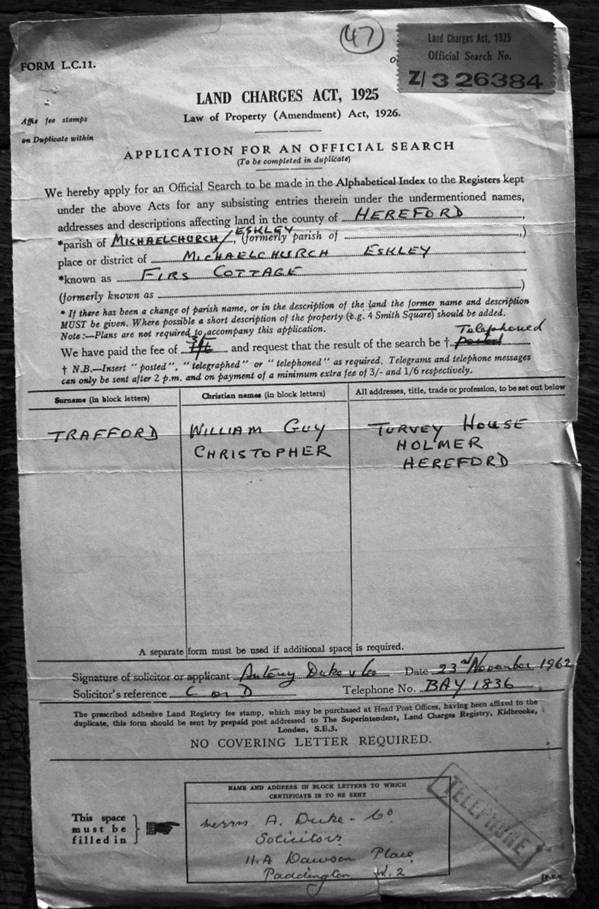 47
Land Charges Act, 1925
Official Search No.
Z/3 26384
FORM L.C.11.
LAND CHARGES ACT, 1925
Law of Property (Amendment) Act, 1926.
Affix fee stamps
on Duplicate within
APPLICATION FOR AN OFFICIAL SEARCH
(To be completed in duplicate)
We hereby apply for an Official Search to be made in the Alphabetical Index to the Registers kept
under the above Acts for any subsisting entries therein under the undermentioned names,
addresses and descriptions affecting land in the county of HEREFORD,
*parish of MICHAELCHURCH/ESKLEY, (formerly parish of )
place or district of MICHAELCHURCH ESKLEY
*known as FIRS COTTAGE
(formerly known as )
* If there has been a change of parish name, or in the description of the land the former name and description
MUST be given. Where possible a short description of the property (e.g. 4 Smith Square) should be added.
Note:—Plans are not required to accompany this application.
Telephoned
We have paid the fee of and request that the result of the search be †. posted
† N.B.—Insert "posted", "telegraphed" or "telephoned" as required. Telegrams and telephone messages
can only be sent after 2 p.m. and on payment of a minimum extra fee of 3/- and 1/6 respectively.
Surname (in block letters) Christian names (in block letters) All addresses, title, trade or profession, to be set out below
TRAFFORD WILLIAM GUY TURVEY HOUSE
CHRISTOPHER HOLMER
HEREFORD
A separate form must be used if additional space is required.
Signature of solicitor or applicant Antony Duke & Co Date 23rd November 1962
Solicitor's reference C or D Telephone No. BAY 1836
The prescribed adhesive Land Registry fee stamp, which may be purchased at Head Post Offices, having been affixed to the
duplicate, this form should be sent by prepaid post addressed to The Superintendent, Land Charges Registry, Kidbrooke,
London, S.E.3.
NO COVERING LETTER REQUIRED.
NAME AND ADDRESS IN BLOCK LETTERS TO WHICH
CERTIFICATE IS TO BE SENT
This space
must be
filled in
Messrs A. Duke & Co
Solicitors
11A Dawson Place
Paddington W.2
TELEPHONE